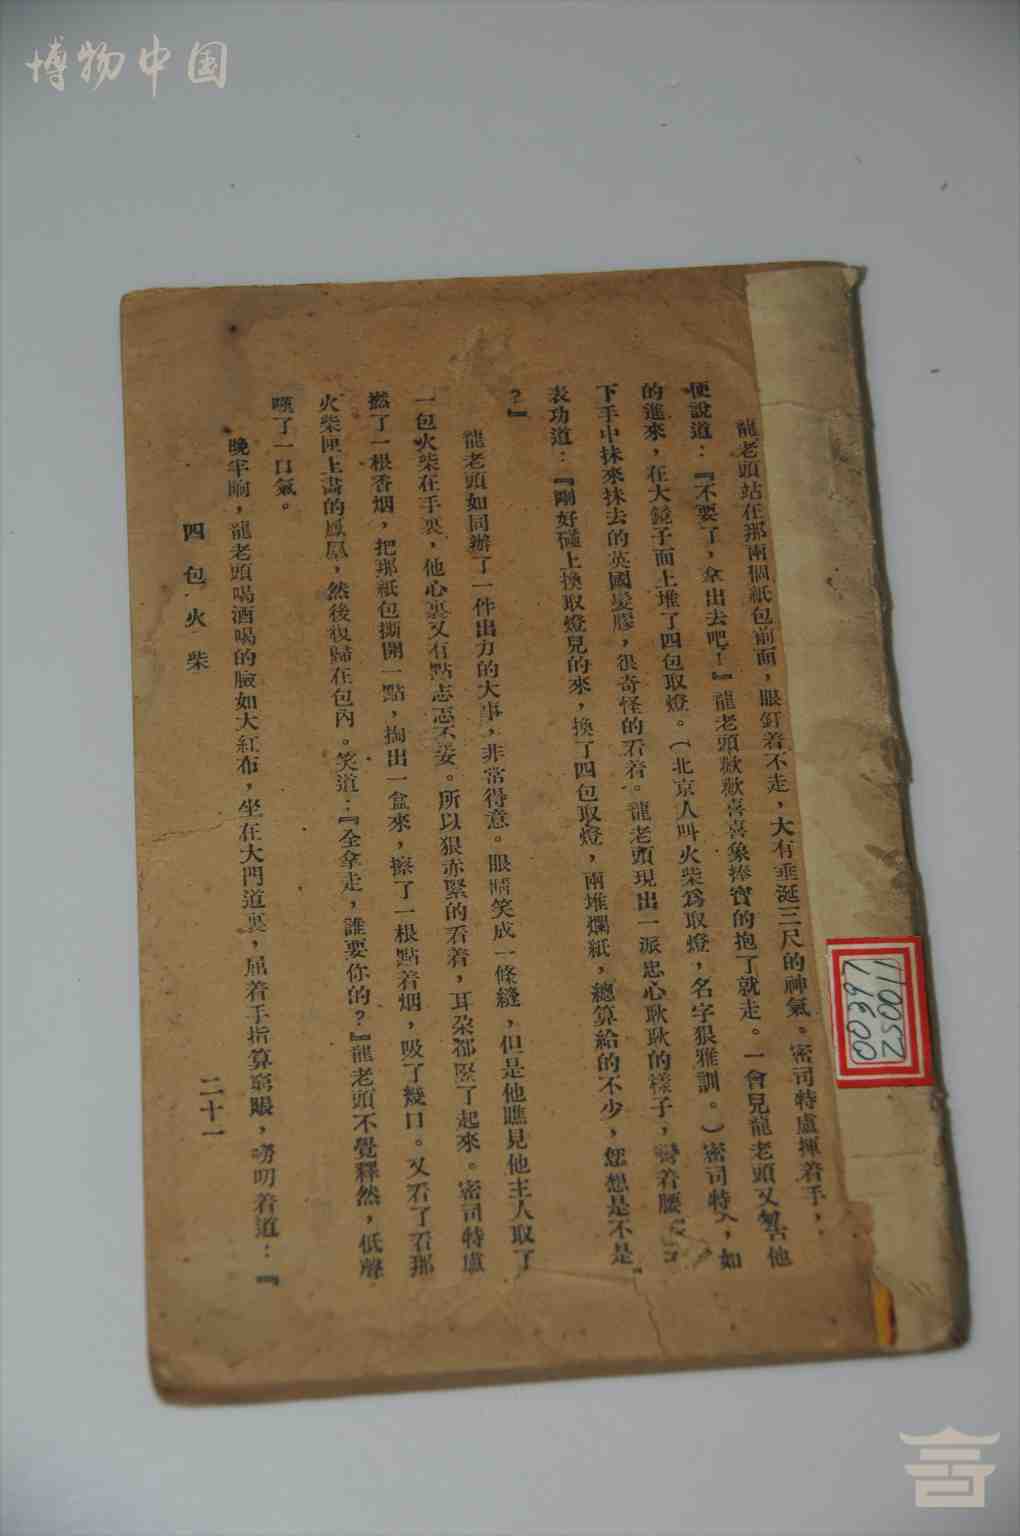 博物中国
龍老頭站在那兩個紙包前面，眼釘着不走，大有垂涎三尺的神氣。密司特盧揮着手，
便說道：『不要了，拿出去吧！』龍老頭歡歡喜喜象捧寶的抱了就走。一會見龍老頭又匆匆
的進來，在大鏡子面上堆了四包取燈。（北京人叫火柴爲取燈，名字狠雅訓。）密司特，如
下手中抹來抹去的英國髮膠，很奇怪的看着。龍老頭現出一派忠心耿耿的樣子，彎着腰
表功道：『剛好碰上換取燈兒的來，換了四包取燈，兩堆爛紙，總算給的不少，您想是不是
？』
龍老頭如同辦了一件出力的大事，非常得意。眼睛笑成一條縫，但是他瞧見他主人取了
一包火柴在手裏，他心裏又有點忐忑不妥。所以狠赤緊的看着，耳朵都竪了起來。密司特盧
撚了一根香烟，把那紙包撕開一點，掏出一盒來，擦了一根點着烟，吸了幾口。又看了看那
火柴匣上畫的鳳凰，然後復歸在包內。笑道：『全拿走，誰要你的？』龍老頭不覺釋然，低聲
嘆了一口氣。
晚半晌，龍老頭喝酒喝的臉如大紅布，坐在大門道裏，屈着手指算窮賬，嘮叨着道：『
四包火柴
二十一
00397
ZS0011